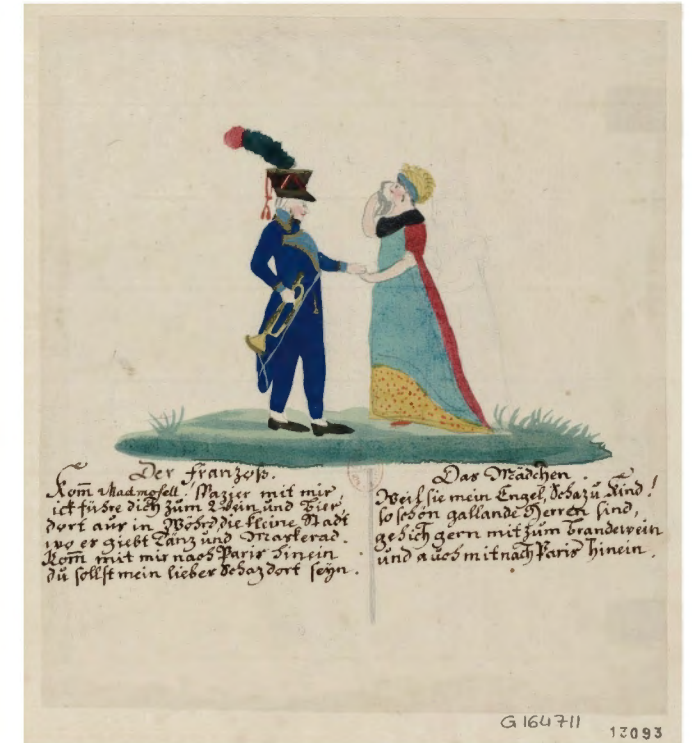 Der Franzoß.
Kom̄ Madmosell! Spazier mit mir
ich führe dich zum Wein und Bier,
dort aus in Wöhrd die kleine Stadt
wo es giebt Tanz und Maskerad.
Kom̄ mit mir nach Paris hinein
du sollst mein lieber Schaz dort seyn.
Das Mädchen.
Weil sie mein Engel, Schaz u Kind!
so schön gallande Herren sind,
geh ich gern mit zum Brandewein
und auch mit nach Paris hinein.
G 164711
13093